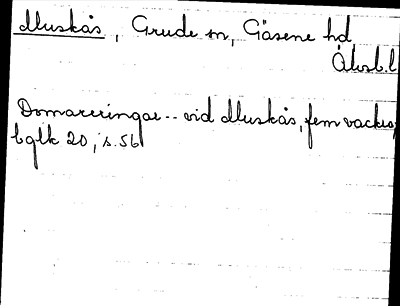 Muskås, Grude sn, Gäsene hd
Älvsb.l
Domareringar -- vid Muskås, fem vackra,
bqlk 20, s. 56